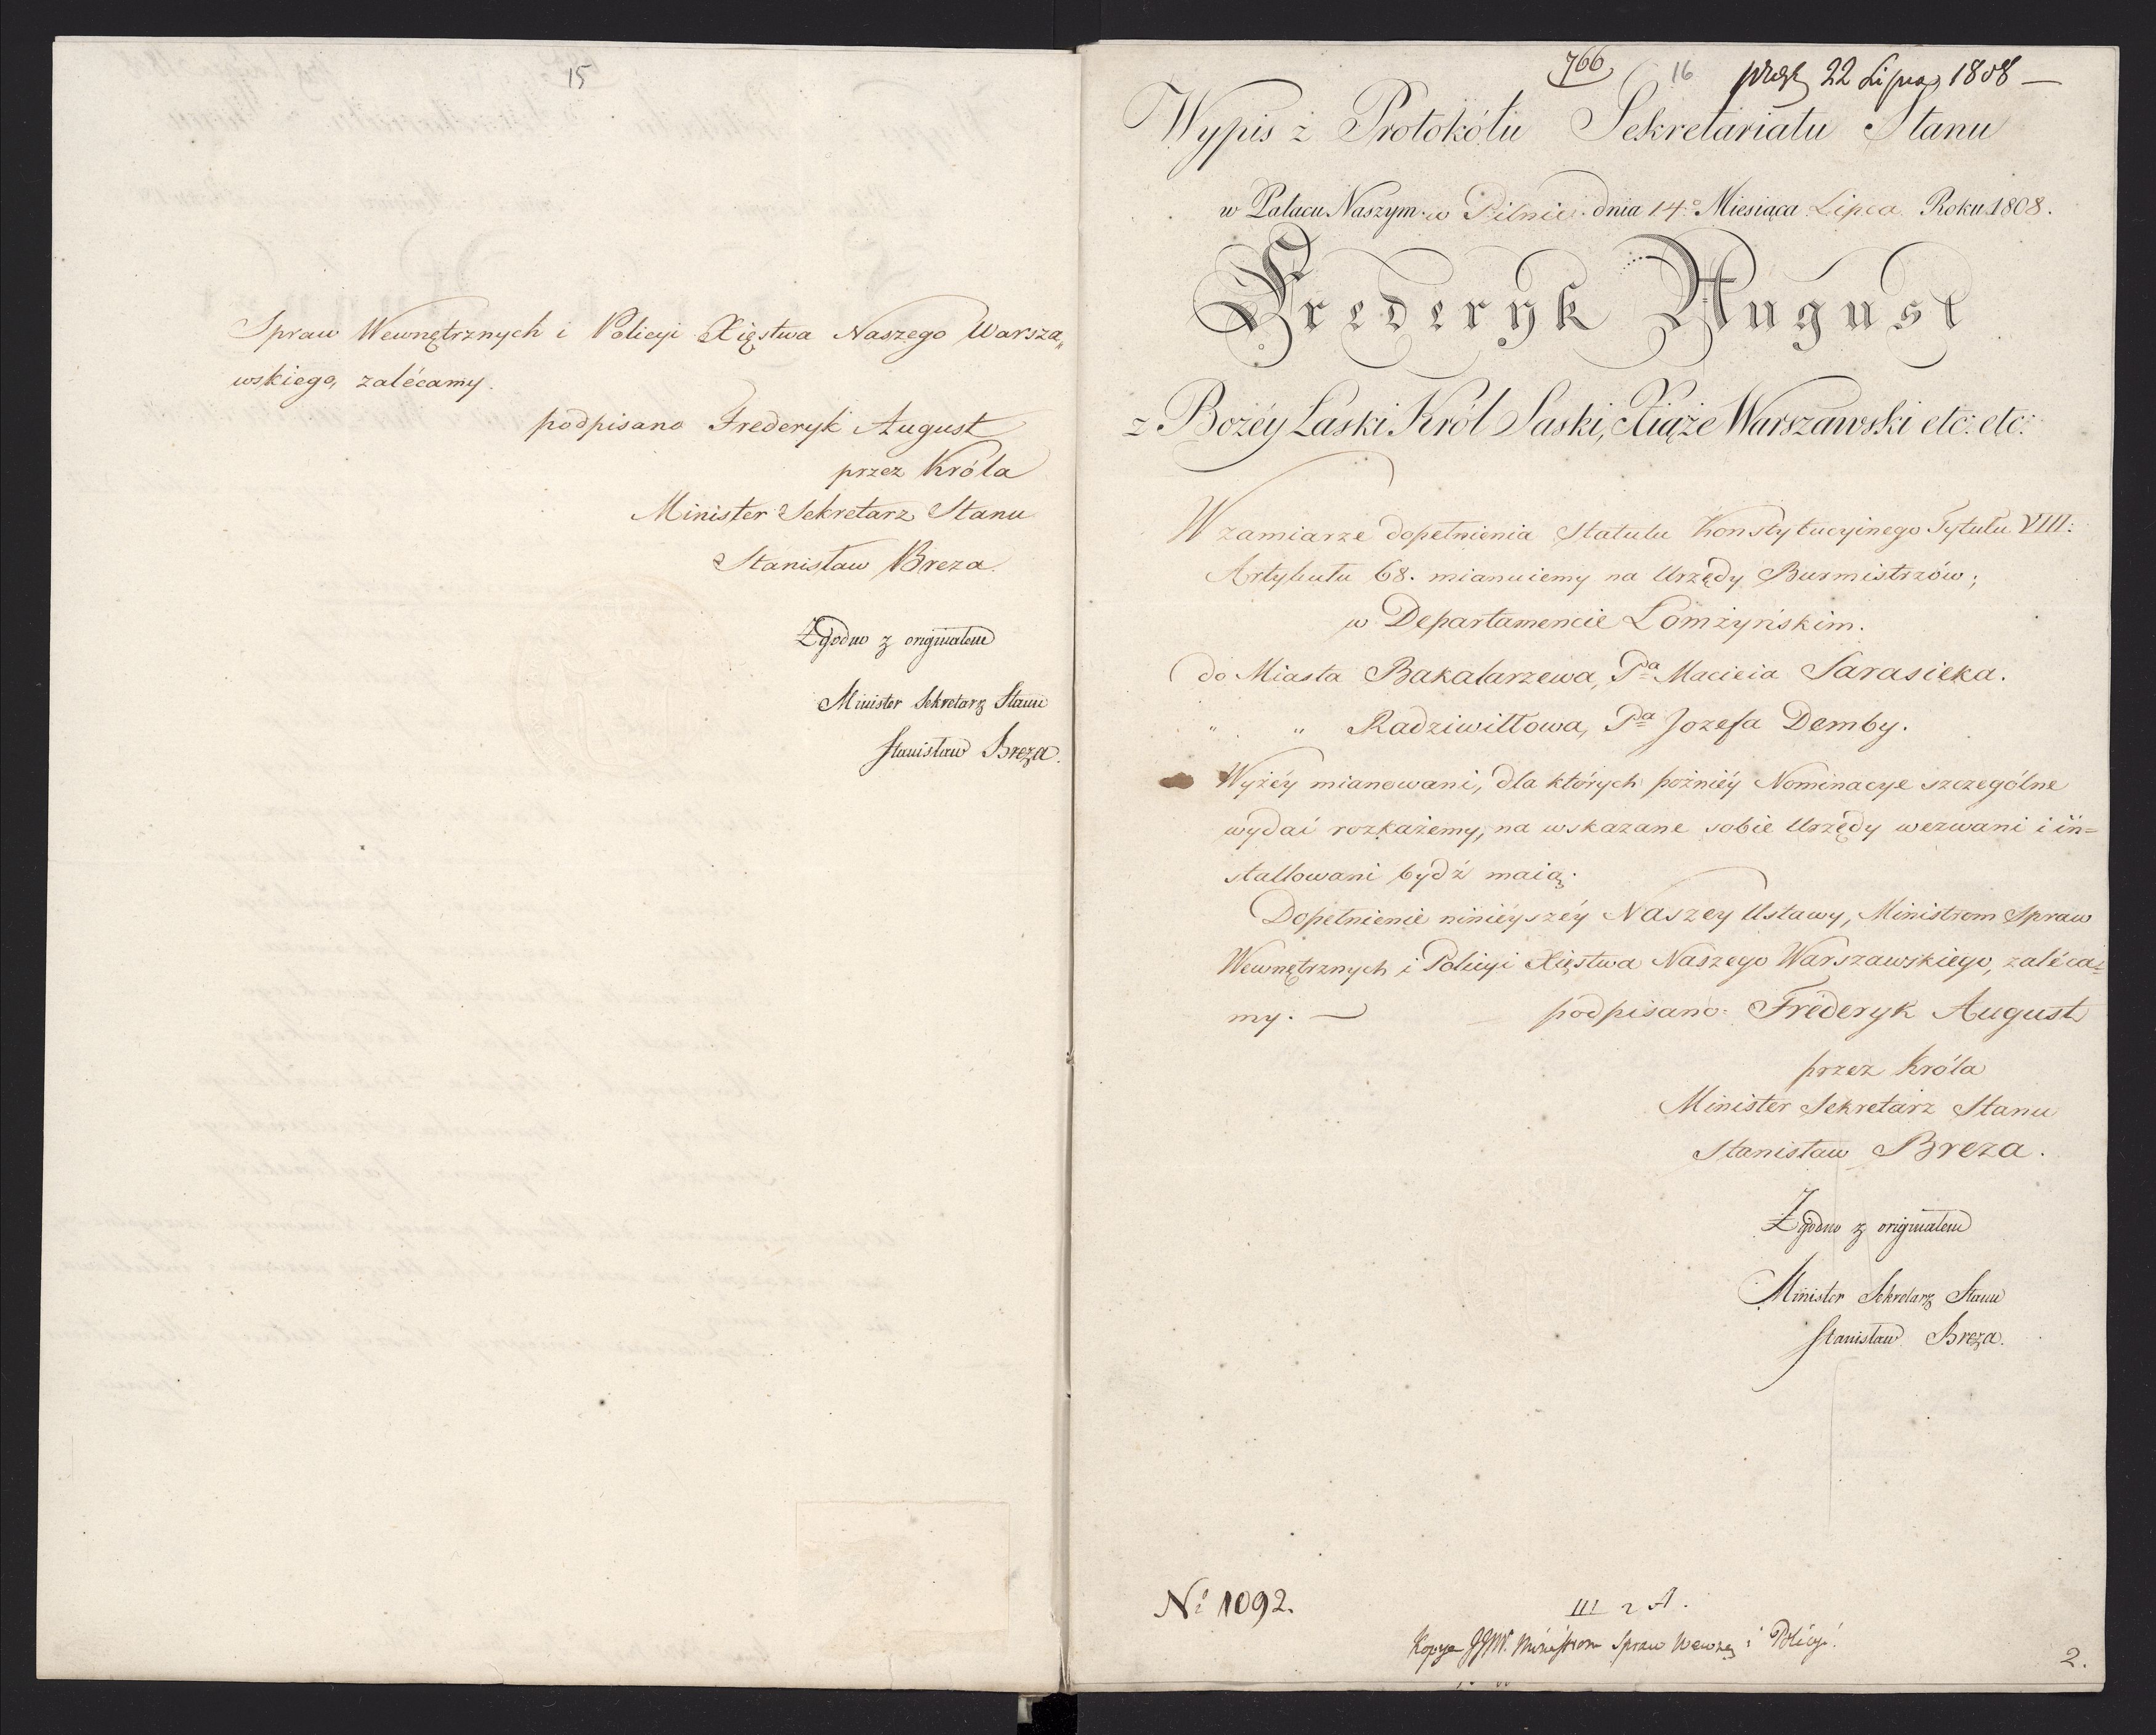 15
Spraw Wewnętrznych i Policyi Xięstwa Naszego Warsza„
wskiego, zalécamy.
podpisano Frederyk August
przez Króla
Minister Sekretarz Stanu
Stanisław Breza.
Zgodno z originałem
Minister Sekretarz Stanu
Stanisław Breza.
766 16 22 Lipca 1808 —
Wypis z Protokółu Sekretariatu Stanu
w Pałacu Naszym w Pilnic. dnia 14º Miesiąca Lipca Roku 1808.
Frederyk August
z Bożéy Łaski Król Saski, Xiąże Warszawski etc: etc:
W zamiarze dopełnienia Statutu Konstytucyinego Tytułu VIII:
Artykułu 68. mianuiemy na Urzędy Burmistrzów;
w Departamencie Łomżyńskim.
do Miasta Bakałarzewa, Pa Macieia Sarasieka.
" " Radziwiłłowa, Pa Jozefa Demby.
Wyżéy mianowani, dla których poźniéy Nominacye szczególne
wydać rozkażemy, na wskazane sobie Urzędy wezwani i in=
stallowani bydź maią.
Dopełnienie ninieyszéy Naszey Ustawy, Ministrom Spraw
Wewnętrznych i Policyi Xięstwa Naszego Warszawskiego, zaléca=
my. — podpisano: Fréderyk August
przez Króla
Minister Sekretarz Stanu
Stanisław Breza.
Zgodno z originałem
Minister Sekretarz Stanu
Stanisław Breza.
No 1092.
III 2 A.
Kopya JJW. Ministrom Spraw Wewnę i Policyi.
2.